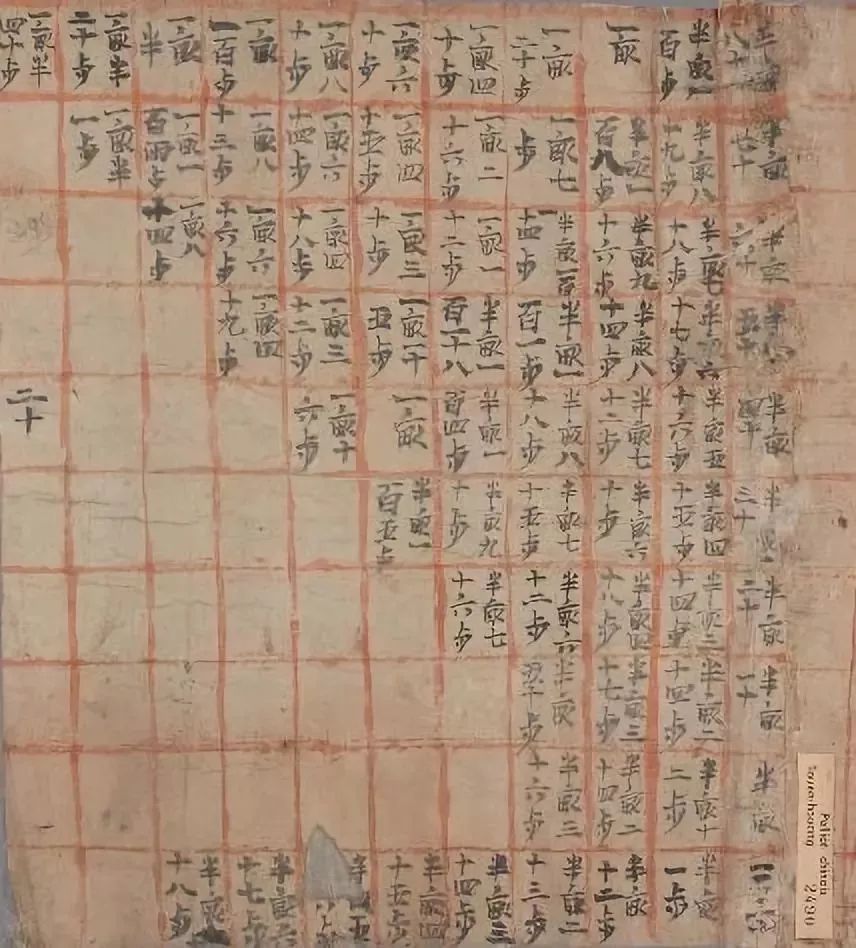 半畝
半畝
半畝六十
半畝五十
半畝四十
半三十
半畝二十
半畝一十
半畝
半畝一百步
半畝八十九步
半畝七十八步
半畝六十七步
半畝五十六步
半畝四十五步
半畝三十四步
半畝二十四步
半畝十二步
半畝一步
一畝
半畝一百八步
半畝九十六步
半畝八十四步
半畝七十二步
半畝六十步
半畝四十八步
半畝三十七步
半畝二十四步
半畝十二步
一畝二十步
一畝七步
半畝一百一十四步
半畝一百一步
半畝八十八步
半畝七十五步
半畝六十二步
半畝步
半畝三十六步
半畝二十三步
一畝四十步
一畝二十六步
一畝一十二步
半畝一百一十八
半畝一百四步
半畝九十步
半畝七十六步
半畝三十四步
一畝六十步
一畝四十五步
一畝三十步
一畝一十五步
一畝
半畝一百五步
半畝四十五步
一畝八十步
一畝六十四步
一畝四十八步
一畝三十二步
一畝十六步
一畝一百步
一畝八十三步
一畝六十六步
一畝四十九步
半畝六十七步
一畝半
一畝一百兩步
一畝八十四步
半畝十八步
一畝半二十步
一畝半一步
一畝半四十步
二十
Pelliot chinois
Touen-houang 2490